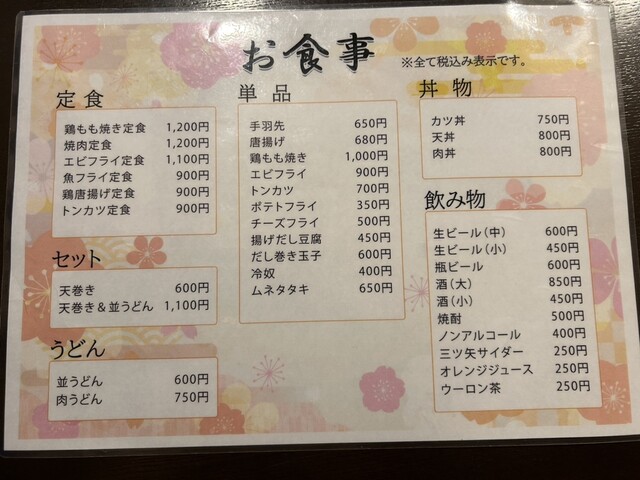 お食事
※全て税込み表示です。
定食
鶏もも焼き定食 1,200円
焼肉定食 1,200円
エビフライ定食 1,100円
魚フライ定食 900円
鶏唐揚げ定食 900円
トンカツ定食 900円
セット
天巻き 600円
天巻き＆並うどん 1,100円
うどん
並うどん 600円
肉うどん 750円
単品
手羽先 650円
唐揚げ 680円
鶏もも焼き 1,000円
エビフライ 900円
トンカツ 700円
ポテトフライ 350円
チーズフライ 500円
揚げだし豆腐 450円
だし巻き玉子 600円
冷奴 400円
ムネタタキ 650円
丼物
カツ丼 750円
天丼 800円
肉丼 800円
飲み物
生ビール（中） 600円
生ビール（小） 450円
瓶ビール 600円
酒（大） 850円
酒（小） 450円
焼酎 500円
ノンアルコール 400円
三ツ矢サイダー 250円
オレンジジュース 250円
ウーロン茶 250円